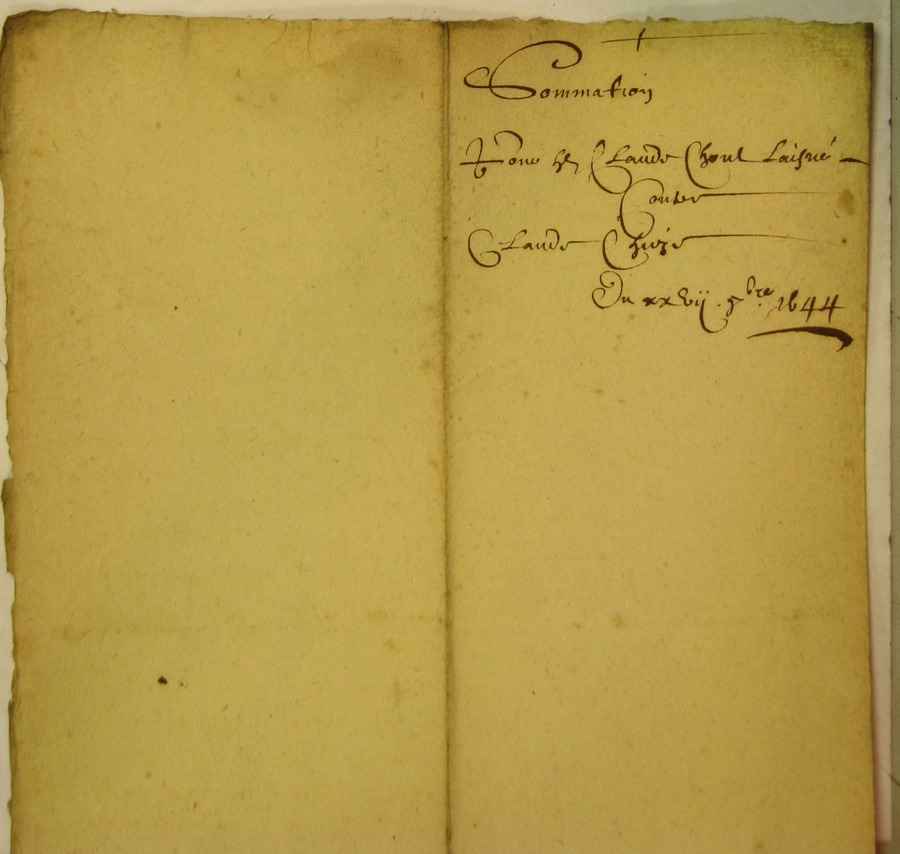 Sommation
Pour Claude Chout Laisné
Contre
Claude
Du xxvij 9bre 1644